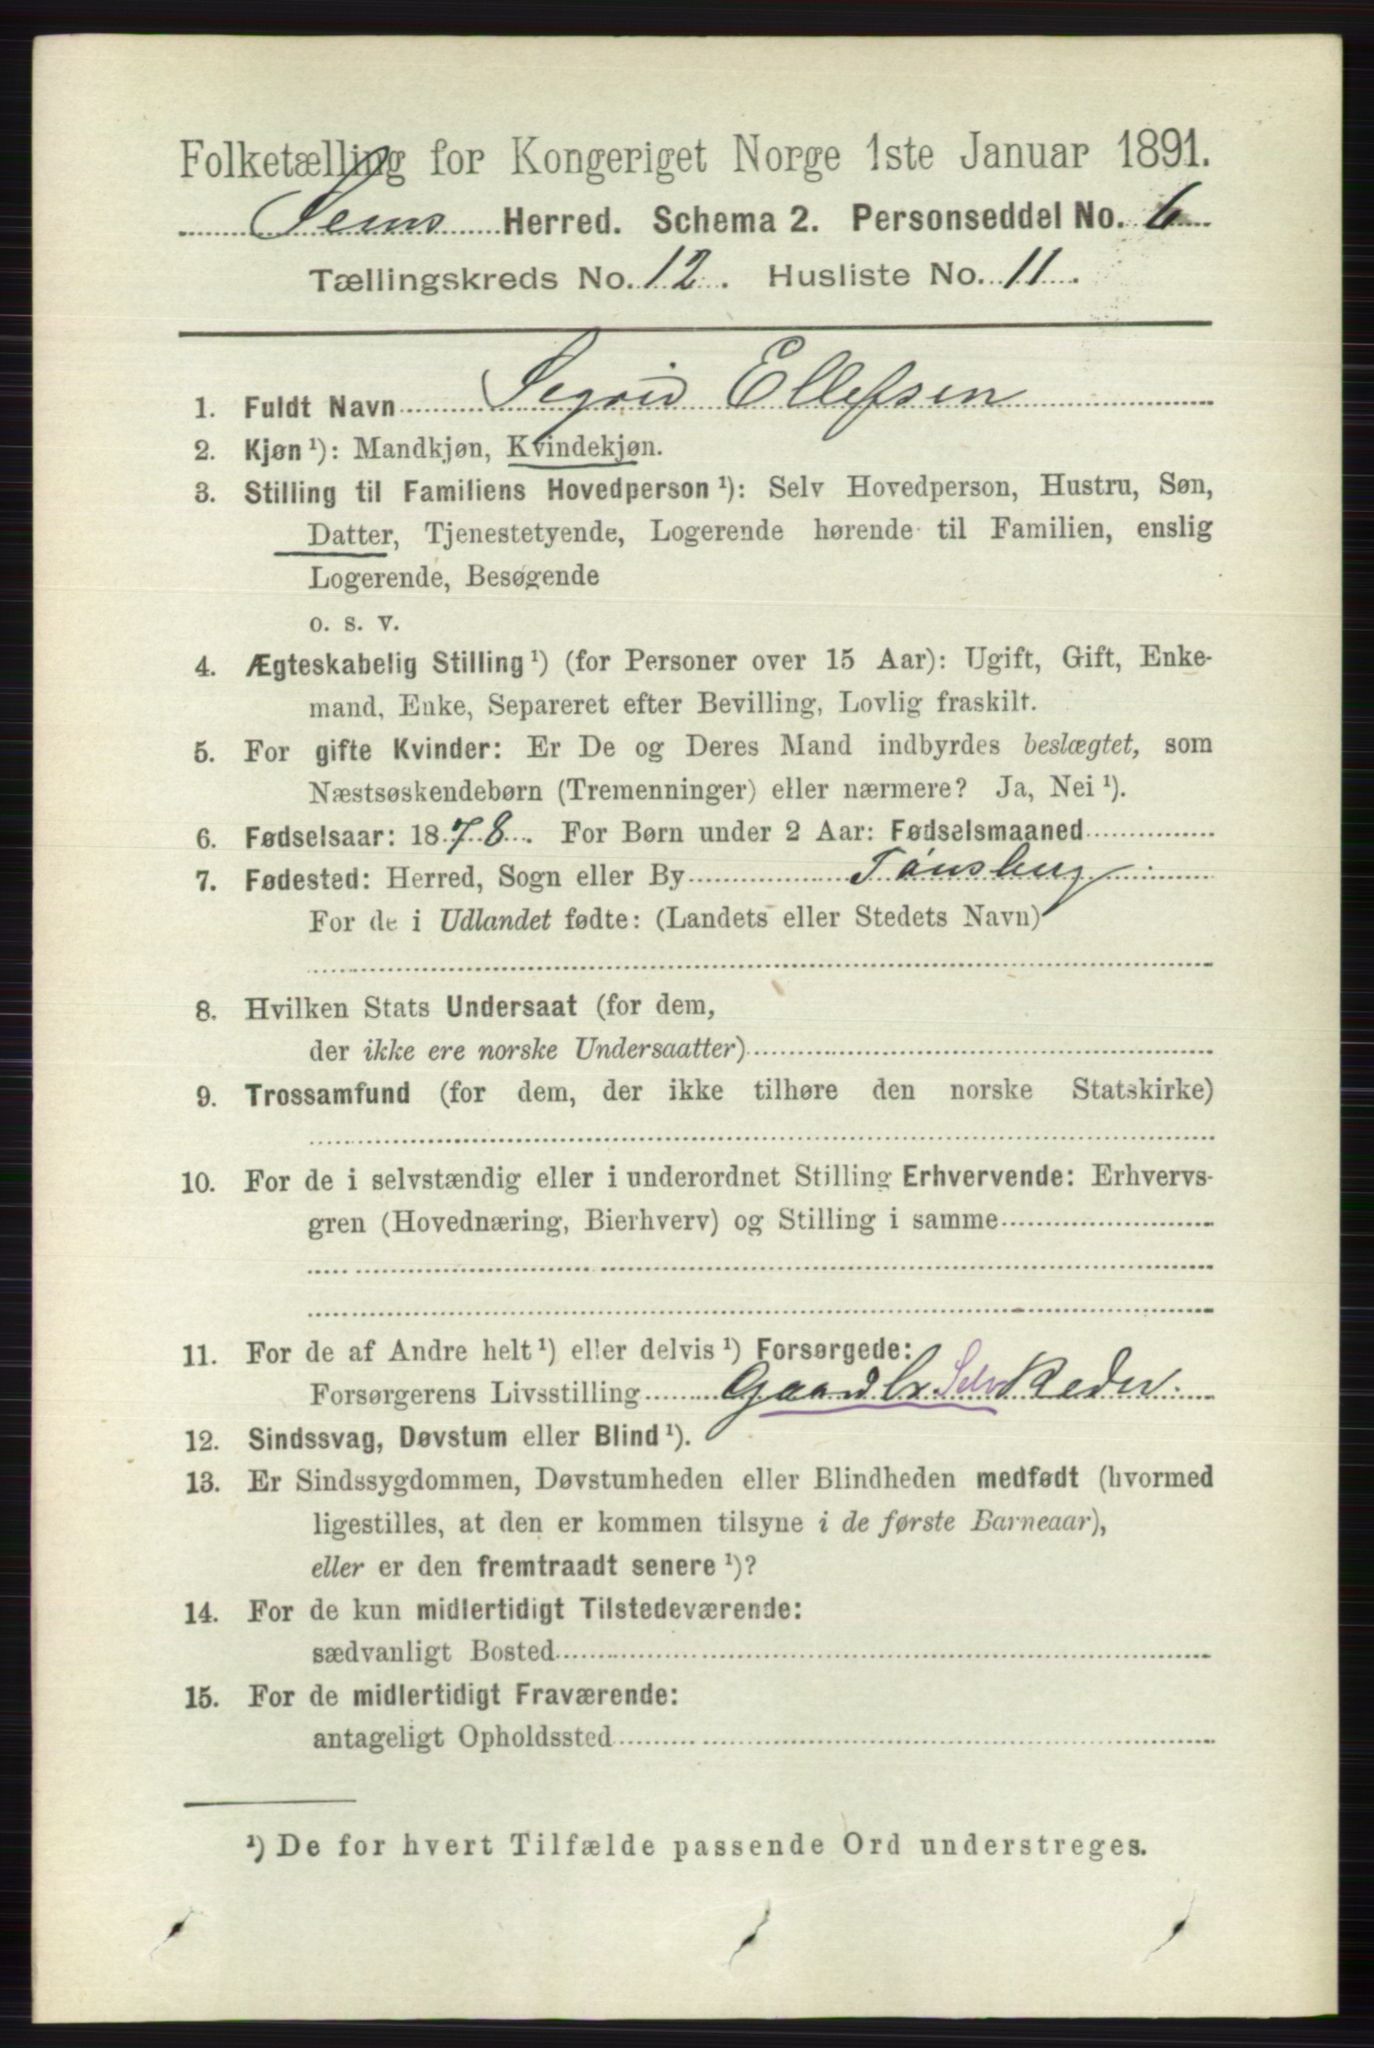 Folketælling for Kongeriget Norge 1ste Januar 1891.
Sems Herred. Schema 2. Personseddel No. 6
Tællingskreds No. 12. Husliste No. 11.
1. Fuldt Navn Segrid Ellefsen
2. Kjøn ¹): Mandkjøn, Kvindekjøn.
3. Stilling til Familiens Hovedperson ¹): Selv Hovedperson, Hustru, Søn,
Datter, Tjenestetyende, Logerende hørende til Familien, enslig
Logerende, Besøgende
o. s. v.
4. Ægteskabelig Stilling ¹) (for Personer over 15 Aar): Ugift, Gift, Enke-
mand, Enke, Separeret efter Bevilling, Lovlig fraskilt.
5. For gifte Kvinder: Er De og Deres Mand indbyrdes beslægtet, som
Næstsøskendebørn (Tremenninger) eller nærmere? Ja, Nei ¹).
6. Fødselsaar: 1878. For Børn under 2 Aar: Fødselsmaaned
7. Fødested: Herred, Sogn eller By Tønsberg
For de i Udlandet fødte: (Landets eller Stedets Navn)
8. Hvilken Stats Undersaat (for dem,
der ikke ere norske Undersaatter)
9. Trossamfund (for dem, der ikke tilhøre den norske Statskirke)
10. For de i selvstændig eller i underordnet Stilling Erhvervende: Erhvervs-
gren (Hovednæring, Bierhverv) og Stilling i samme
11. For de af Andre helt ¹) eller delvis ¹) Forsørgede:
Forsørgerens Livsstilling Gaardbr Selv Reder.
12. Sindssvag, Døvstum eller Blind ¹).
13. Er Sindssygdommen, Døvstumheden eller Blindheden medfødt (hvormed
ligestilles, at den er kommen tilsyne i de første Barneaar),
eller er den fremtraadt senere ¹)?
14. For de kun midlertidigt Tilstedeværende:
sædvanligt Bosted
15. For de midlertidigt Fraværende:
antageligt Opholdssted
¹) De for hvert Tilfælde passende Ord understreges.